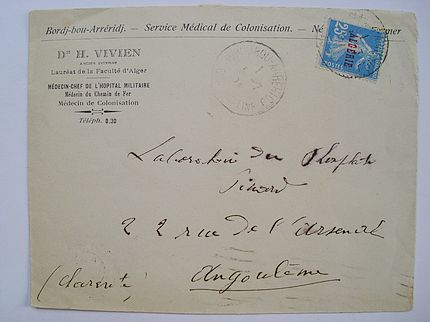 Bordj-bou-Arréridj. - Service Médical de Colonisation. -
Dr H. VIVIEN
ANCIEN INTERNE
Lauréat de la Faculté d'Alger
MÉDECIN-CHEF DE L'HOPITAL MILITAIRE
Médecin du Chemin de Fer
Médecin de Colonisation
Téléph. 0,30
25c
ALGÉRIE
POSTES
Laboratoire du Phosphate
Pinard
22 rue de l'Arsenal
Angoulême
(Charente)